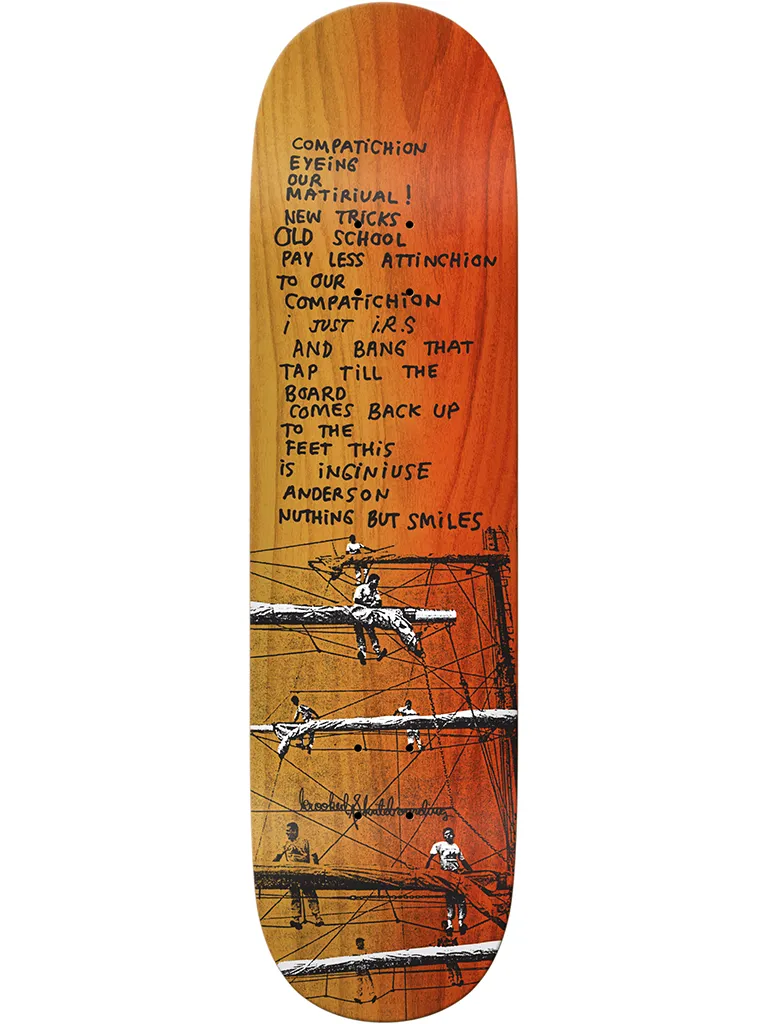 COMPATiCHiON
EYEiNG
OUR
MATiRiUAL!
NEW TRiCKS
OLD SCHOOL
PAY LESS ATTiNCHiON
TO OUR
COMPATiCHiON
i JUST i.R.S
AND BANG THAT
TAP TiLL THE
BOARD
COMES BACK UP
TO THE
FEET THiS
iS iNGiNiUSE
ANDERSON
NUTHiNG BUT SMiLES
krooked Skateboarding